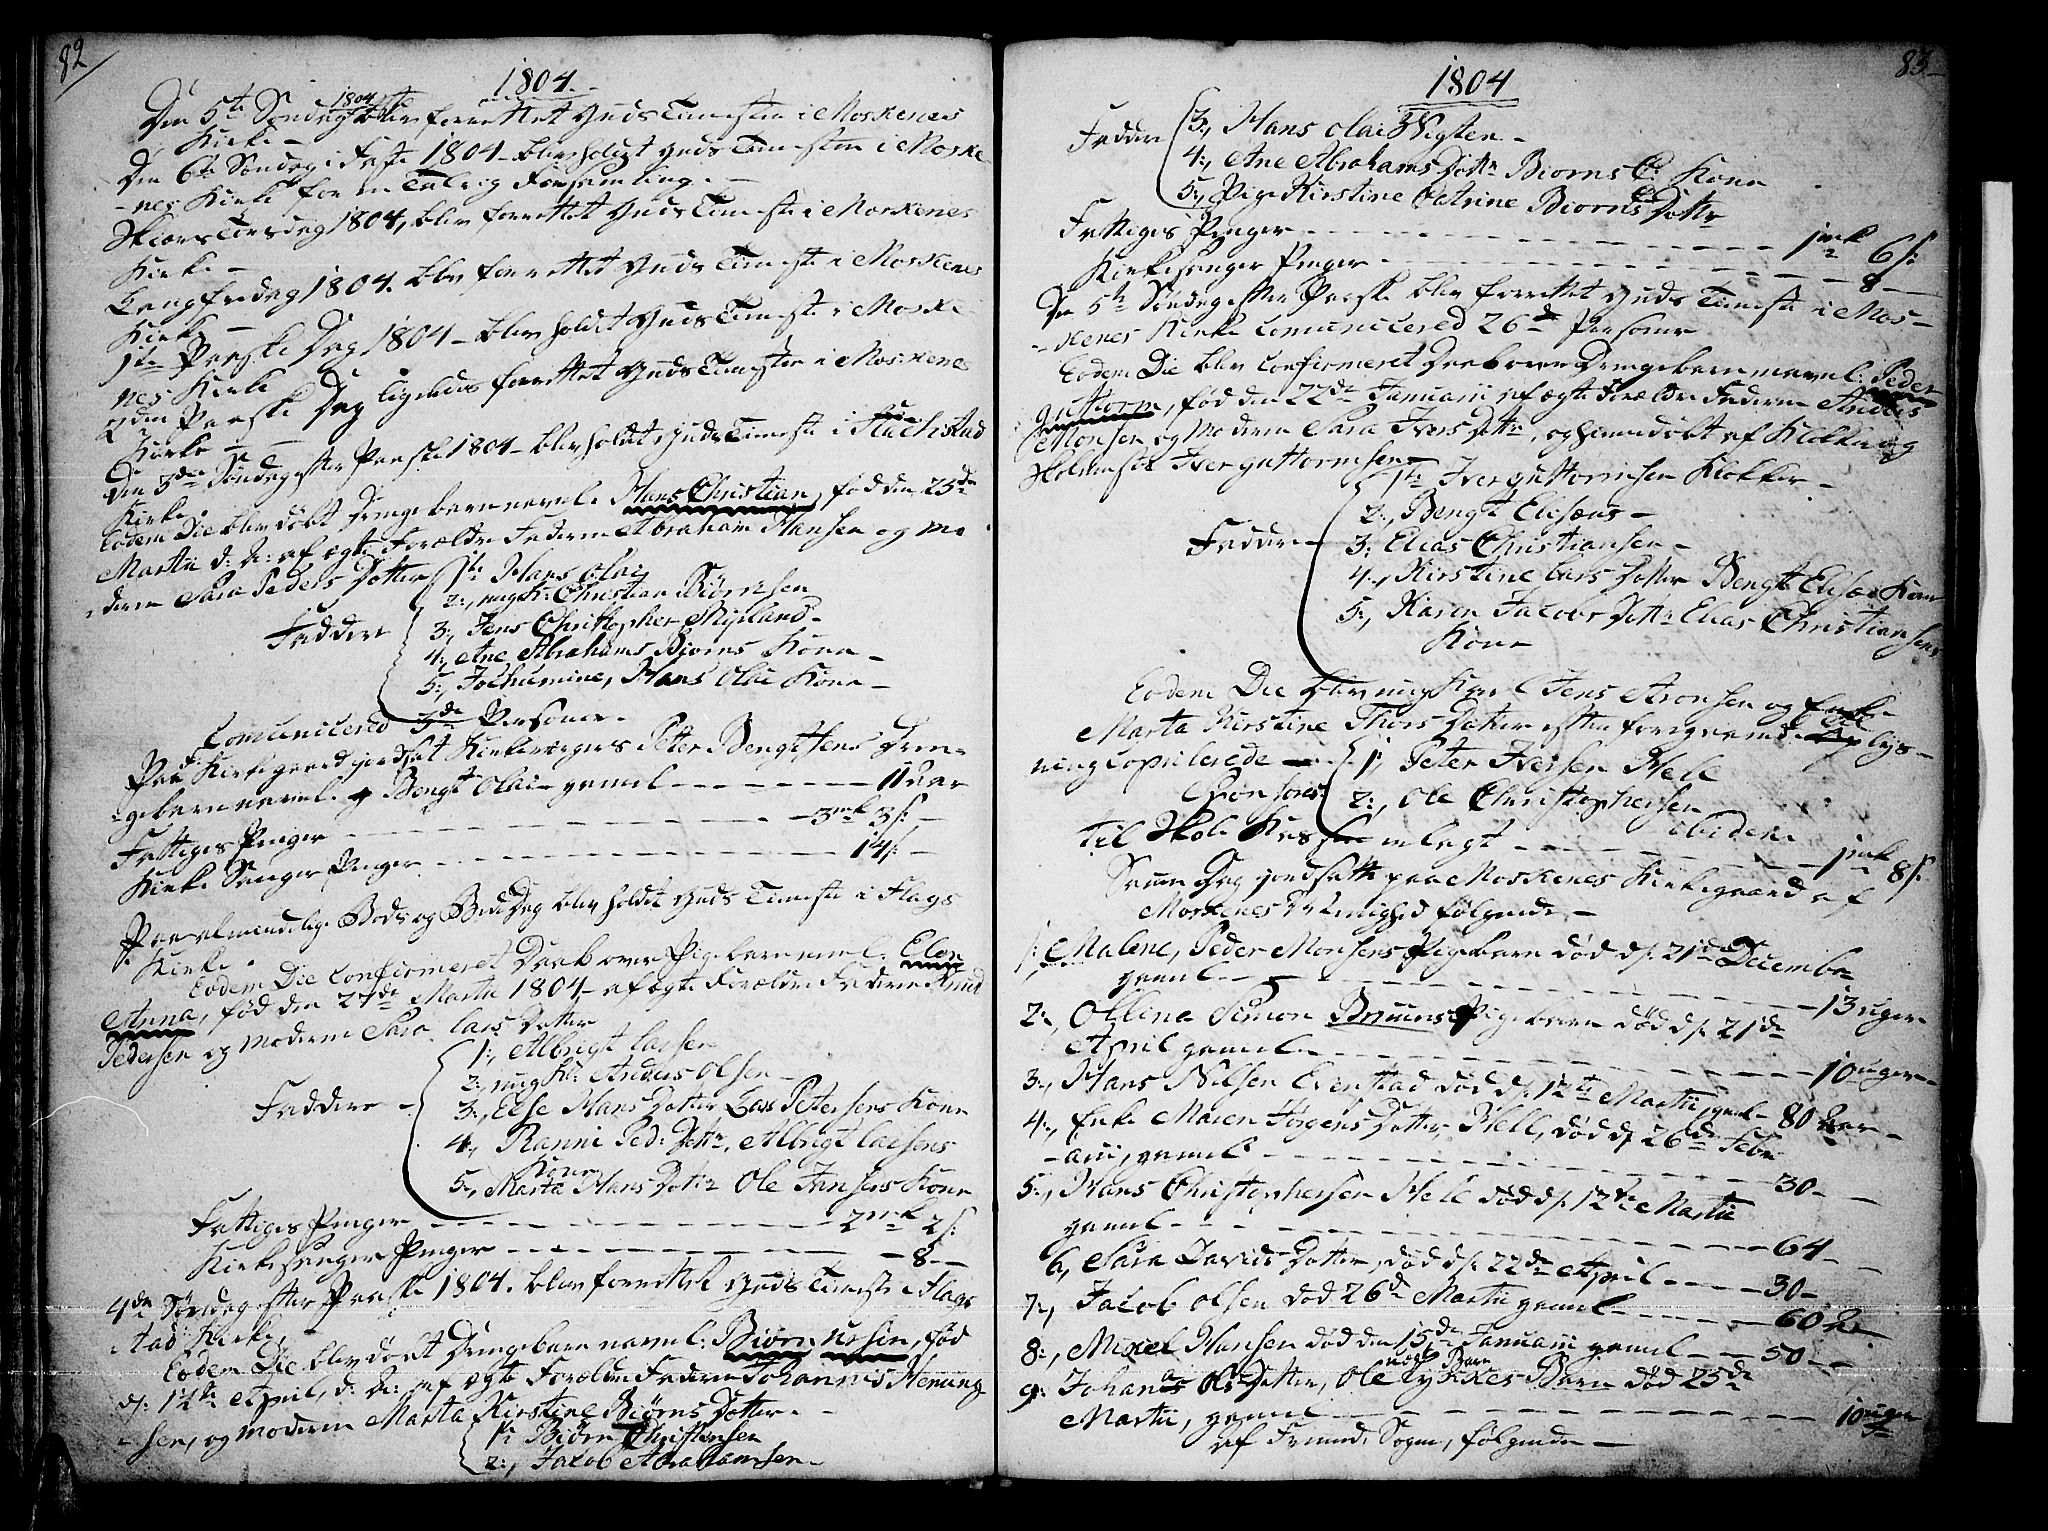 82
1804.
Den 5te Søndag i Faste 1804 blev forrettet Guds Tieneste i Moskenes
Kirke.
Den 6te Søndag i Faste 1804 blev holdet Guds Tienesten i Moske
-nes Kirke for en talrig Forsamling.
Skiærs Torsdag 1804, blev forrettet Guds Tieneste i Moskenes
Kirke
Langfredag 1804. blev forrettet Guds Tieneste i Moskenes
Kirke
1ste Paaske Dag 1804 blev holdet Guds Tieneste i Moske
nes Kirke
2den Paaske Dag ligeledes forrettet Guds Tienesten i Moskenes
Kirke
Den 3die Søndag efter Paaske 1804 blev holdet Guds Tieneste i Flachstad
Kirke.
Eodem Die blev døbt Drengebarn navnl. Hans Christian, fød den 25de
Martii d: A: af ægte Forældre Faderen Abraham Hansen og Mo
deren Sara Peders Dotter
Faddere
1te Hans Olai
2:, ung K: Christian Biørnsen
3:, Jens Christopher
4:, Ane Abrahams Biørns Kone
5:, Jochumine, Hans Olai Kone
Comunicered 3de Personer.
Paa Kirkegaard jordsat Kirkeværgers Peter Bengthsens Dren-
gebarn navnl. Bengt Olai gaml 11 Aar
Fattiges Penger 3mk 3s:
Kirke Sanger Penger 14s:
Paa almindelige Bods og Bede Dag blev holdet Guds Tieneste i Flags
Kirke.
Eodem Die confirmeret Daab over Pigebarn navnl. Elen
Anna, fød den 27de Martii 1804 af ægte Forældre Faderen Knud
Pedersen og Moderen Sara Lars Dotter
Faddere
1:, Albrigt Larsen
2:, ung K: Anders Olsen
3:, Else Hans Dotter Lars Petersens Kone
4:, Ranni Ped: Dottr, Albrigt Larsens
Kone
5:, Marta Hans Dottr Ole Jensens Kone
Fattiges Penger 2mk 2s:
Kirkesanger Penger 8
4de Søndag efter Paaske 1804. blev forrettet Guds Tieneste i Flags
tad Kirke,
Eodem Die blev døbt Drengebarn navnl: Biørn Ursin, fød
d: 12te April, d: A: af ægte Forældre Faderen Johannes Hening
sen, og Moderen Marta Kirstine Biørns Dotter.
1: Biørn Christensen
2:, Jacob Abrahamsen
83
1804
Faddere
3:, Hans Olai Wigten
4:, Ane Abrahams Dottr Biørns C: Kone
5:, Pige Kirstine Catrine Biorns Dottr
Fattiges Penger 1mk 6s:
Kirkesanger Penger 8
Den 5te Søndag efter Paaske blev forrettet Guds Tieneste i Mos-
kenes Kirke comunicered 26de Personer
Eodem Die blev confirmeret Daab over Drengebarn navnl: Peder
Guttorm, fød den 22de Januarii af ægte Forældre Faderen Anders
Monsen og Moderen Sara Ivers Dottr, og hiemedøbt af Klokker og
Skolemester Iver Guttormsen
Faddere
1te Iver Guttormsen Klokker
2:, Bengt Elisæus
3:, Elias Christiansen
4:, Kirstine Lars Dotter Bengt Elisæi Kone
5:, Karen Jacobs Dottr Elias Christiansens
Kone
Eodem Die blev ung Karl Jens Aronsen og Enke
Marta Kirstine Thors Dotter efter foregaaende Til lys-
ning copulerede
Sponsores
1:, Peter Iversen Hell
2:, Ole Christophersen
ibidem
Til Skole Kassen inlegt 1mk 8s:
Samme Dag jordsatt paa Moskenes Kirkegaard af
Moskenes Almighed følgende
1: Malene, Peder Monsens Pigebarn død d: 21de Decembr
gaml 13 uger
2:, Ollena Simon Bruuns Pigebarn død d: 21de
April gaml 10 uger
3:, Hans Nilsen Evenstad død d: 12te Martii, gaml 80 Aar
4:, Enke Maren Jørgens Dotter Hell, død d: 26de Febr
arii, gaml 30
5:, Hans Christophersen Hell død d: 12te Martii
gaml 64
6, Sara Davids Dotter, død d: 22de April 30
7:, Jacob Olsen død 26de Martii gaml 60 Ar
8:, Mikel Hansen død den 15de Januarii gaml 50
9: Johana Ols Dotter, Ole Lykkes Barn død 25de
Martii, gaml 10 uger
af Fremede Sogne, følgende